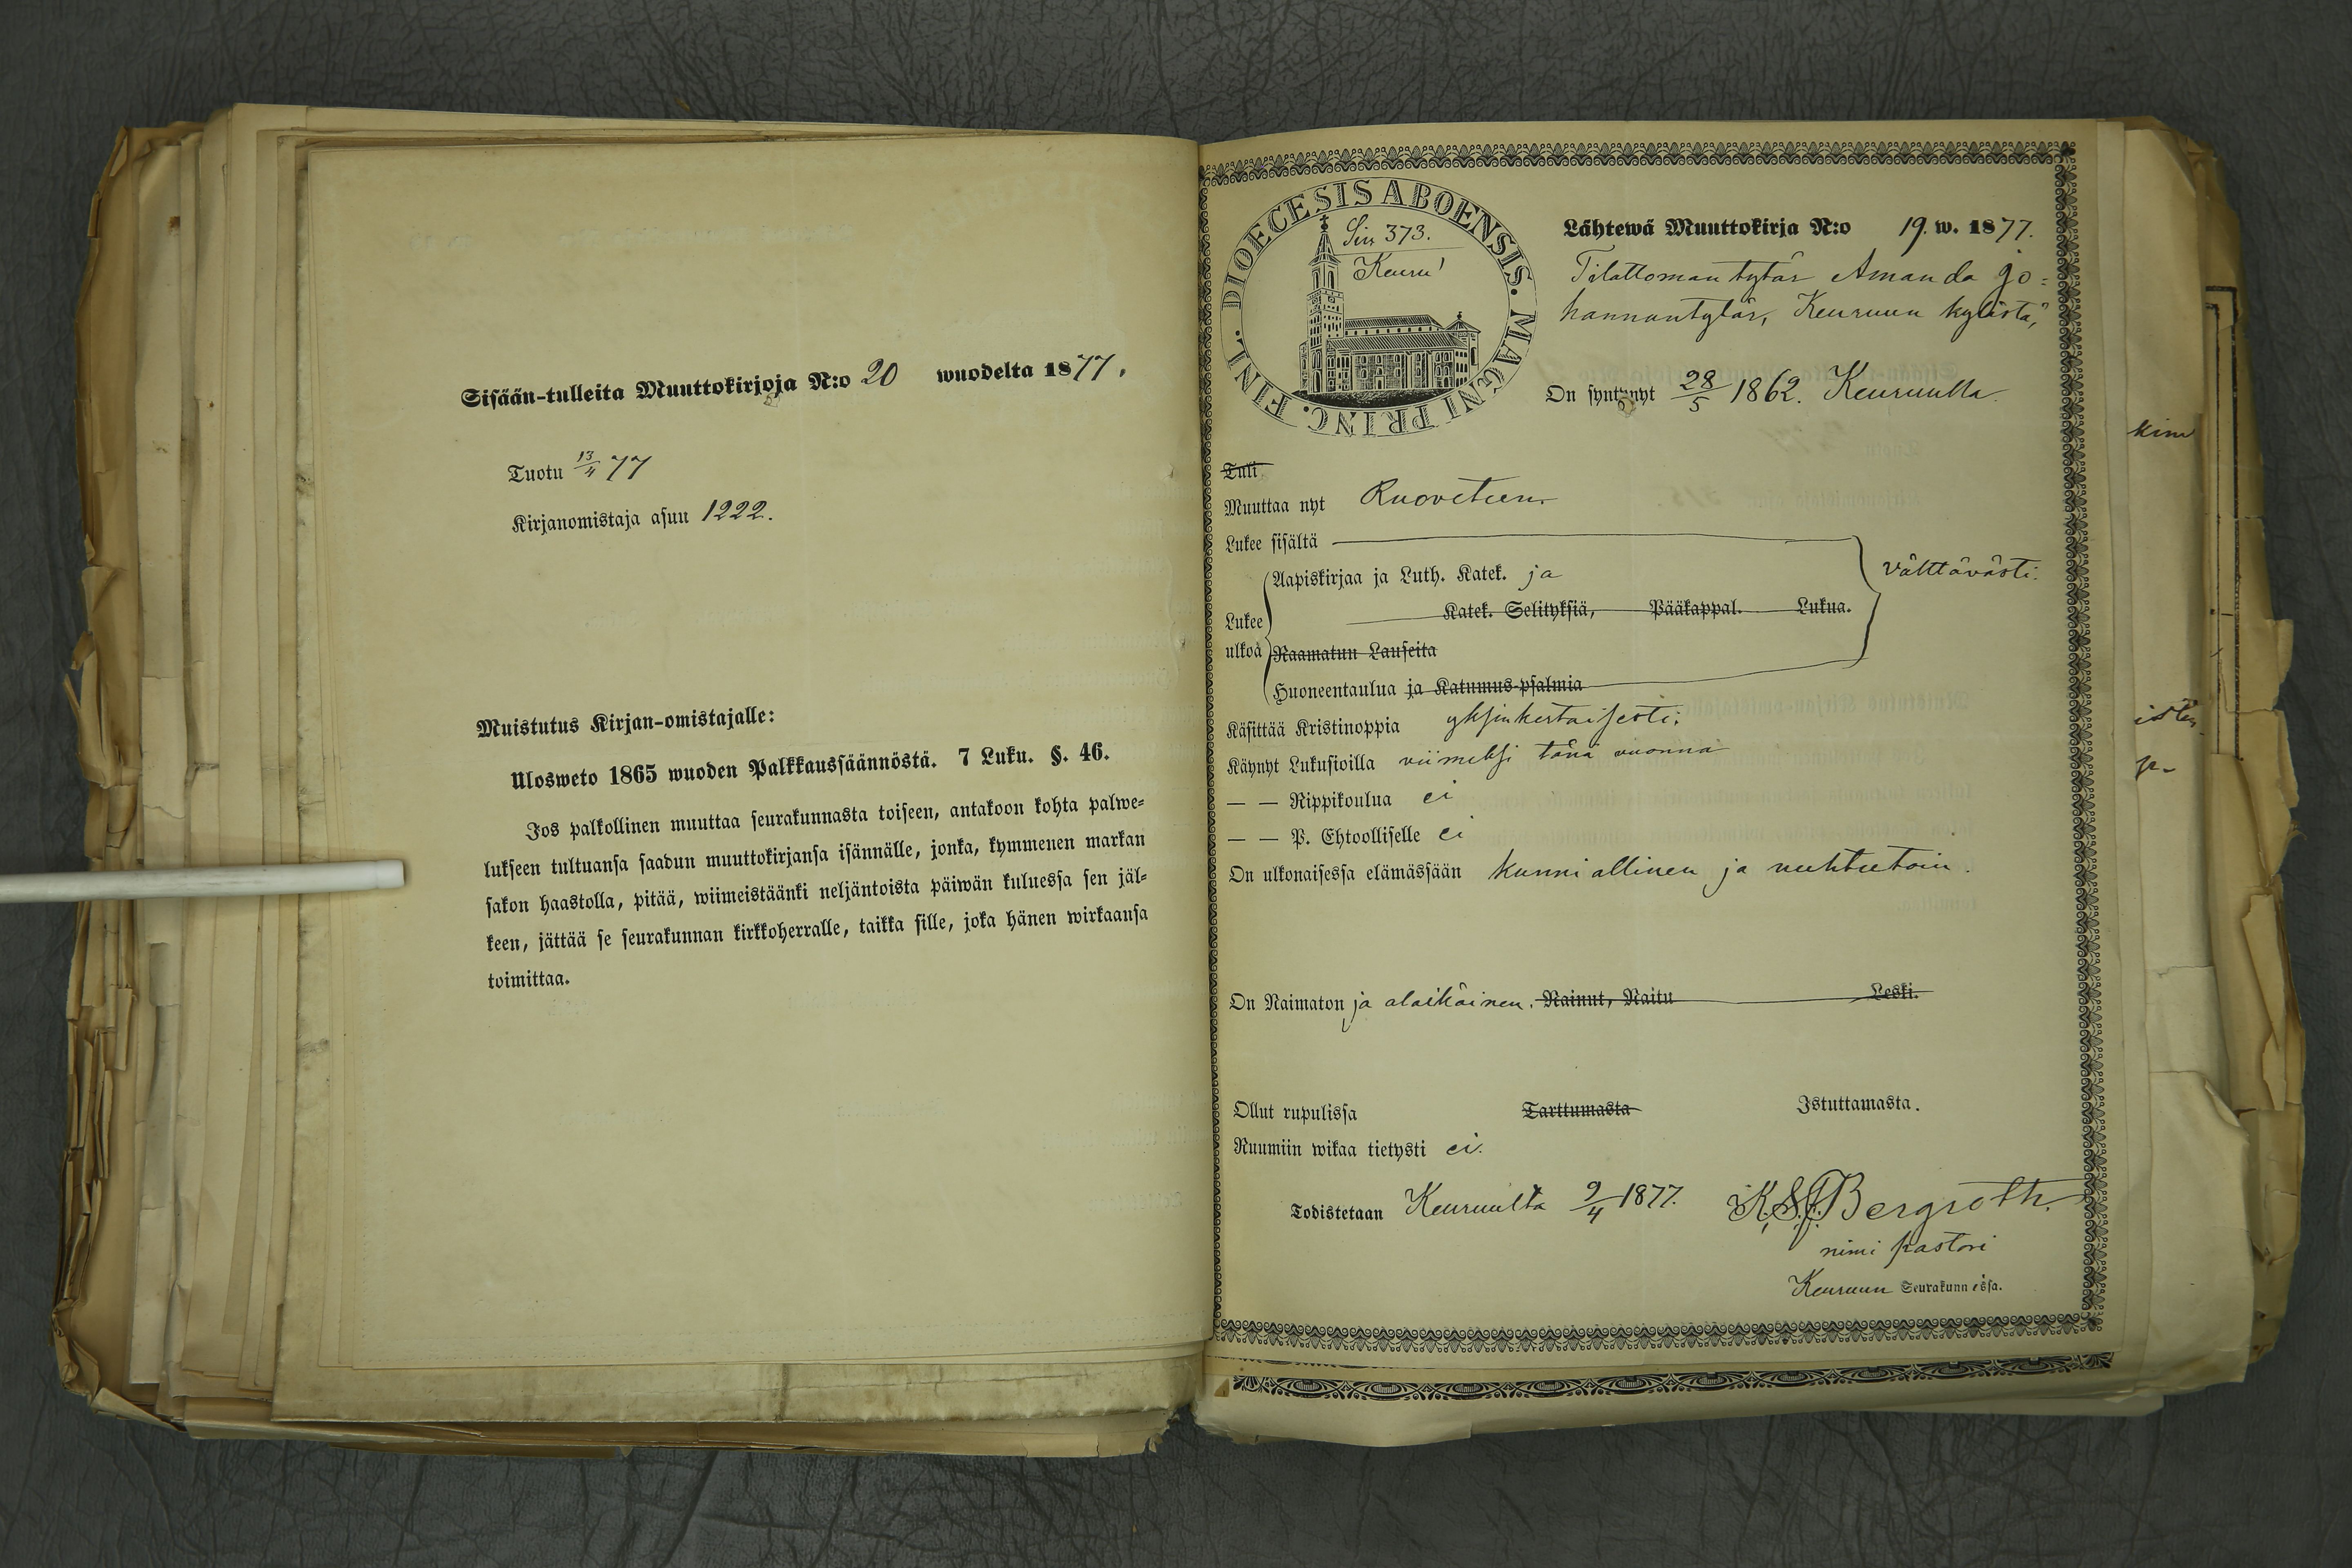 Sisään-tulleita Muuttokirjoja N:o 20 wuodelta 1877.
Tuotu 13/4 77
Kirjanomistaja asuu 1222.
Muistutus Kirjan-omistajalle:
Ulosweto 1865 wuoden Palkkaussäännöstä. 7 Luku. §. 46.
Jos palkollinen muuttaa seurakunnasta toiseen, antakoon kohta palwe-
lukseen tultuansa saadun muuttokirjansa isännälle, jonka, kymmenen markan
sakon haastolla, pitää, wiimeistäänki neljäntoista päiwän kuluessa sen jäl-
keen, jättää se seurakunnan kirkkoherralle, taikka sille, joka hänen wirkaansa
toimittaa.
DIOECESIS ABOENSIS. MAGNI PRINC. FINL.
Siv 373.
Keuru
Lähtewä Muuttokirja N:o 19. w. 1877.
Tilattoman tytär Amanda Jo=
hannantytär, Keuruun kylästä,
On syntynyt 28/5 1862. Keuruulla.
Tuli
Muuttaa nyt Ruoveteen
Lukee sisältä
Aapiskirjaa ja Luth. Katek. ja
välttävästi.
Katek. Selityksiä, Pääkappal. Lukua.
Lukee
ulkoa
Raamatun Lauseita
Huoneentaulua ja Katumus-psalmia
Käsittää Kristinoppia yksinkertaisesti.
Käynyt Lukusioilla viimeksi tänä vuonna
— — Rippikoulua ei
— — P. Ehtoolliselle ei
On ulkonaisessa elämässään kunniallinen ja nuhteetoin.
On Naimaton ja alaikäinen. Nainut, Naitu Leski.
Ollut rupulissa Tarttumasta Istuttamasta.
Ruumiin wikaa tietysti ei.
Todistetaan Keuruulta 9/4 1877. K. S. J. Bergroth.
nimi pastori
Keuruun Seurakunnassa.